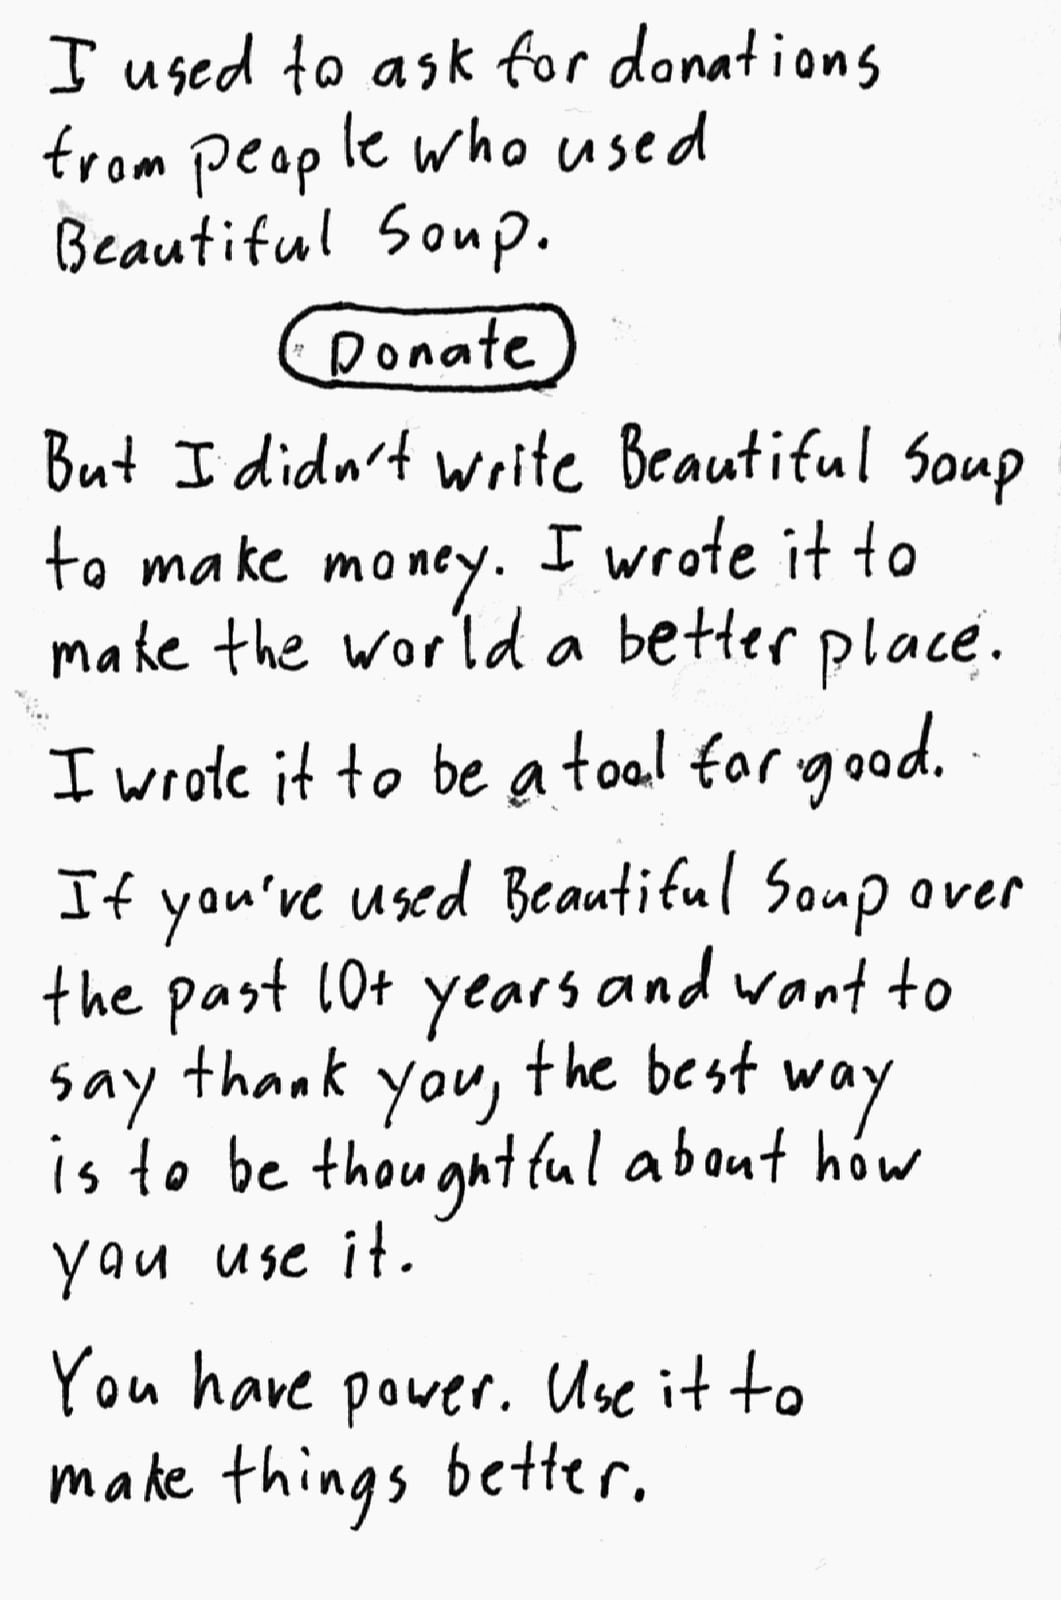 I used to ask for donations
from people who used
Beautiful Soup.
Donate
But I didn't write Beautiful Soup
to make money. I wrote it to
make the world a better place.
I wrote it to be a tool for good.
If you've used Beautiful Soup over
the past 10+ years and want to
say thank you, the best way
is to be thoughtful about how
you use it.
You have power. Use it to
make things better.